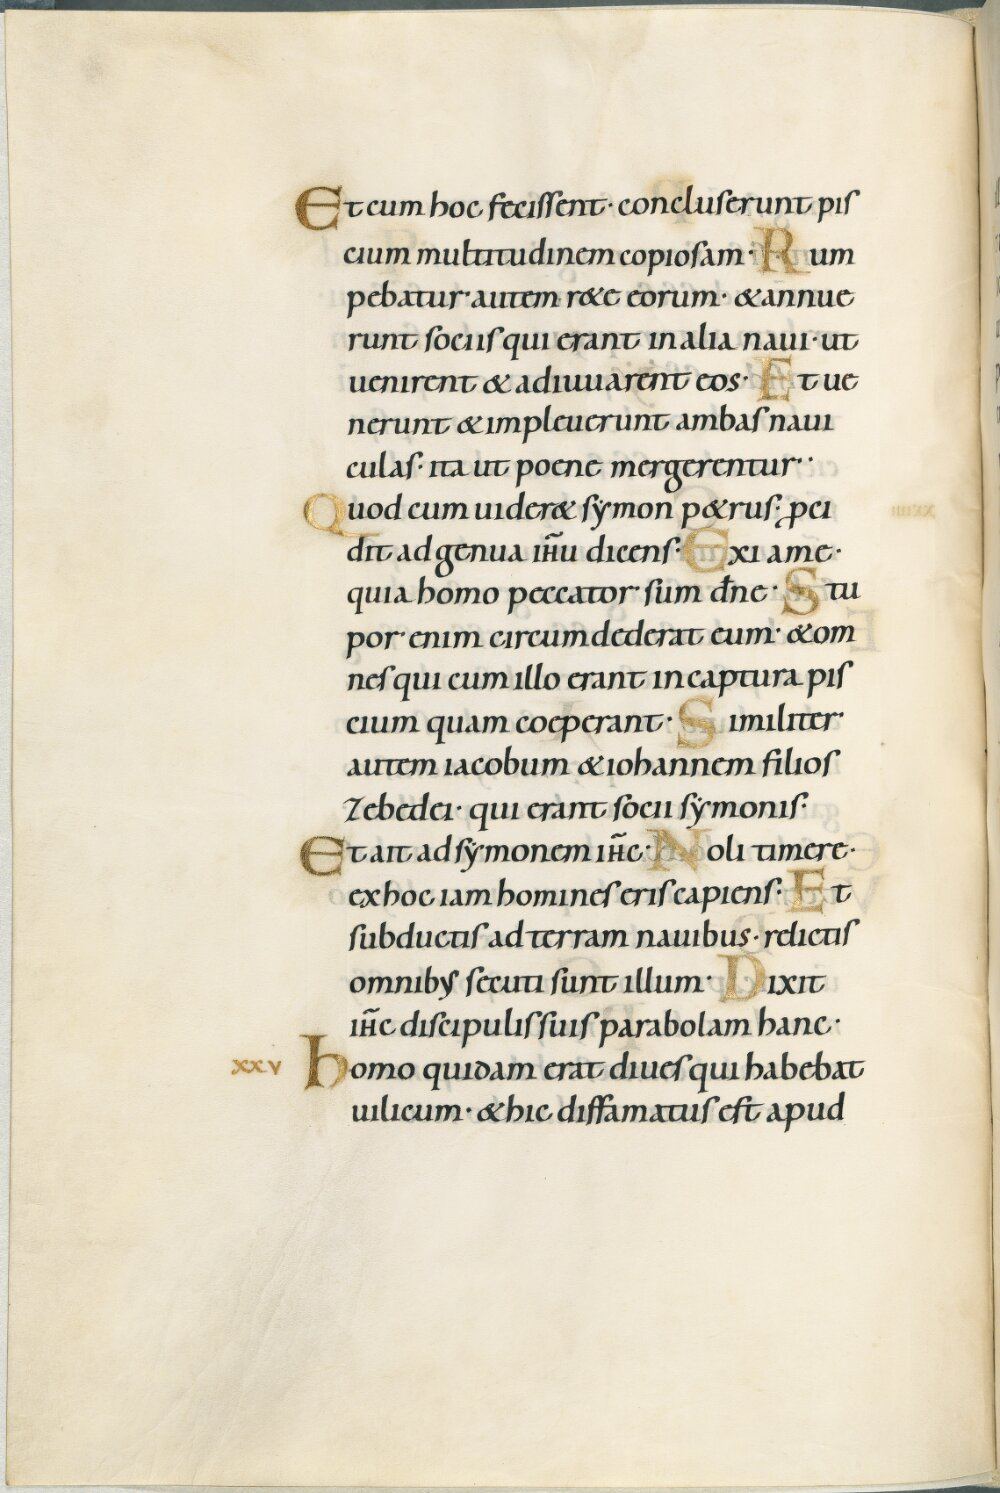 Et cum hoc fecissent· concluserunt pis
cium multitudinem copiosam· Rum
pebatur autem r&e eorum· &annue
runt sociis qui erant in alia naui· ut
uenirent & adiuuarent eos· Et ue
nerunt & impleuerunt ambas naui
culas· ita ut poene mergerentur··
Quod cum uider& symon p&rus· ꝓci
dit ad genua ih̅u dicens· Exi a me·
quia homo peccator sum dn̅e· Stu
por enim circumdederat eum· &om
nes qui cum illo erant in captura pis
cium quam coeperant· Similiter
autem iacobum & iohannem filios
Zebedei· qui erant socii symonis·
Et ait ad symonem ih̅c· Noli timere·
ex hoc iam homines eris capiens· Et
subductis ad terram nauibus· relictis
omnibꝰ secuti sunt illum· Dixit
ih̅c discipulis suis parabolam hanc·
xxv homo quidam erat diues qui habebat
uilicum· & hic diffamatus est apud